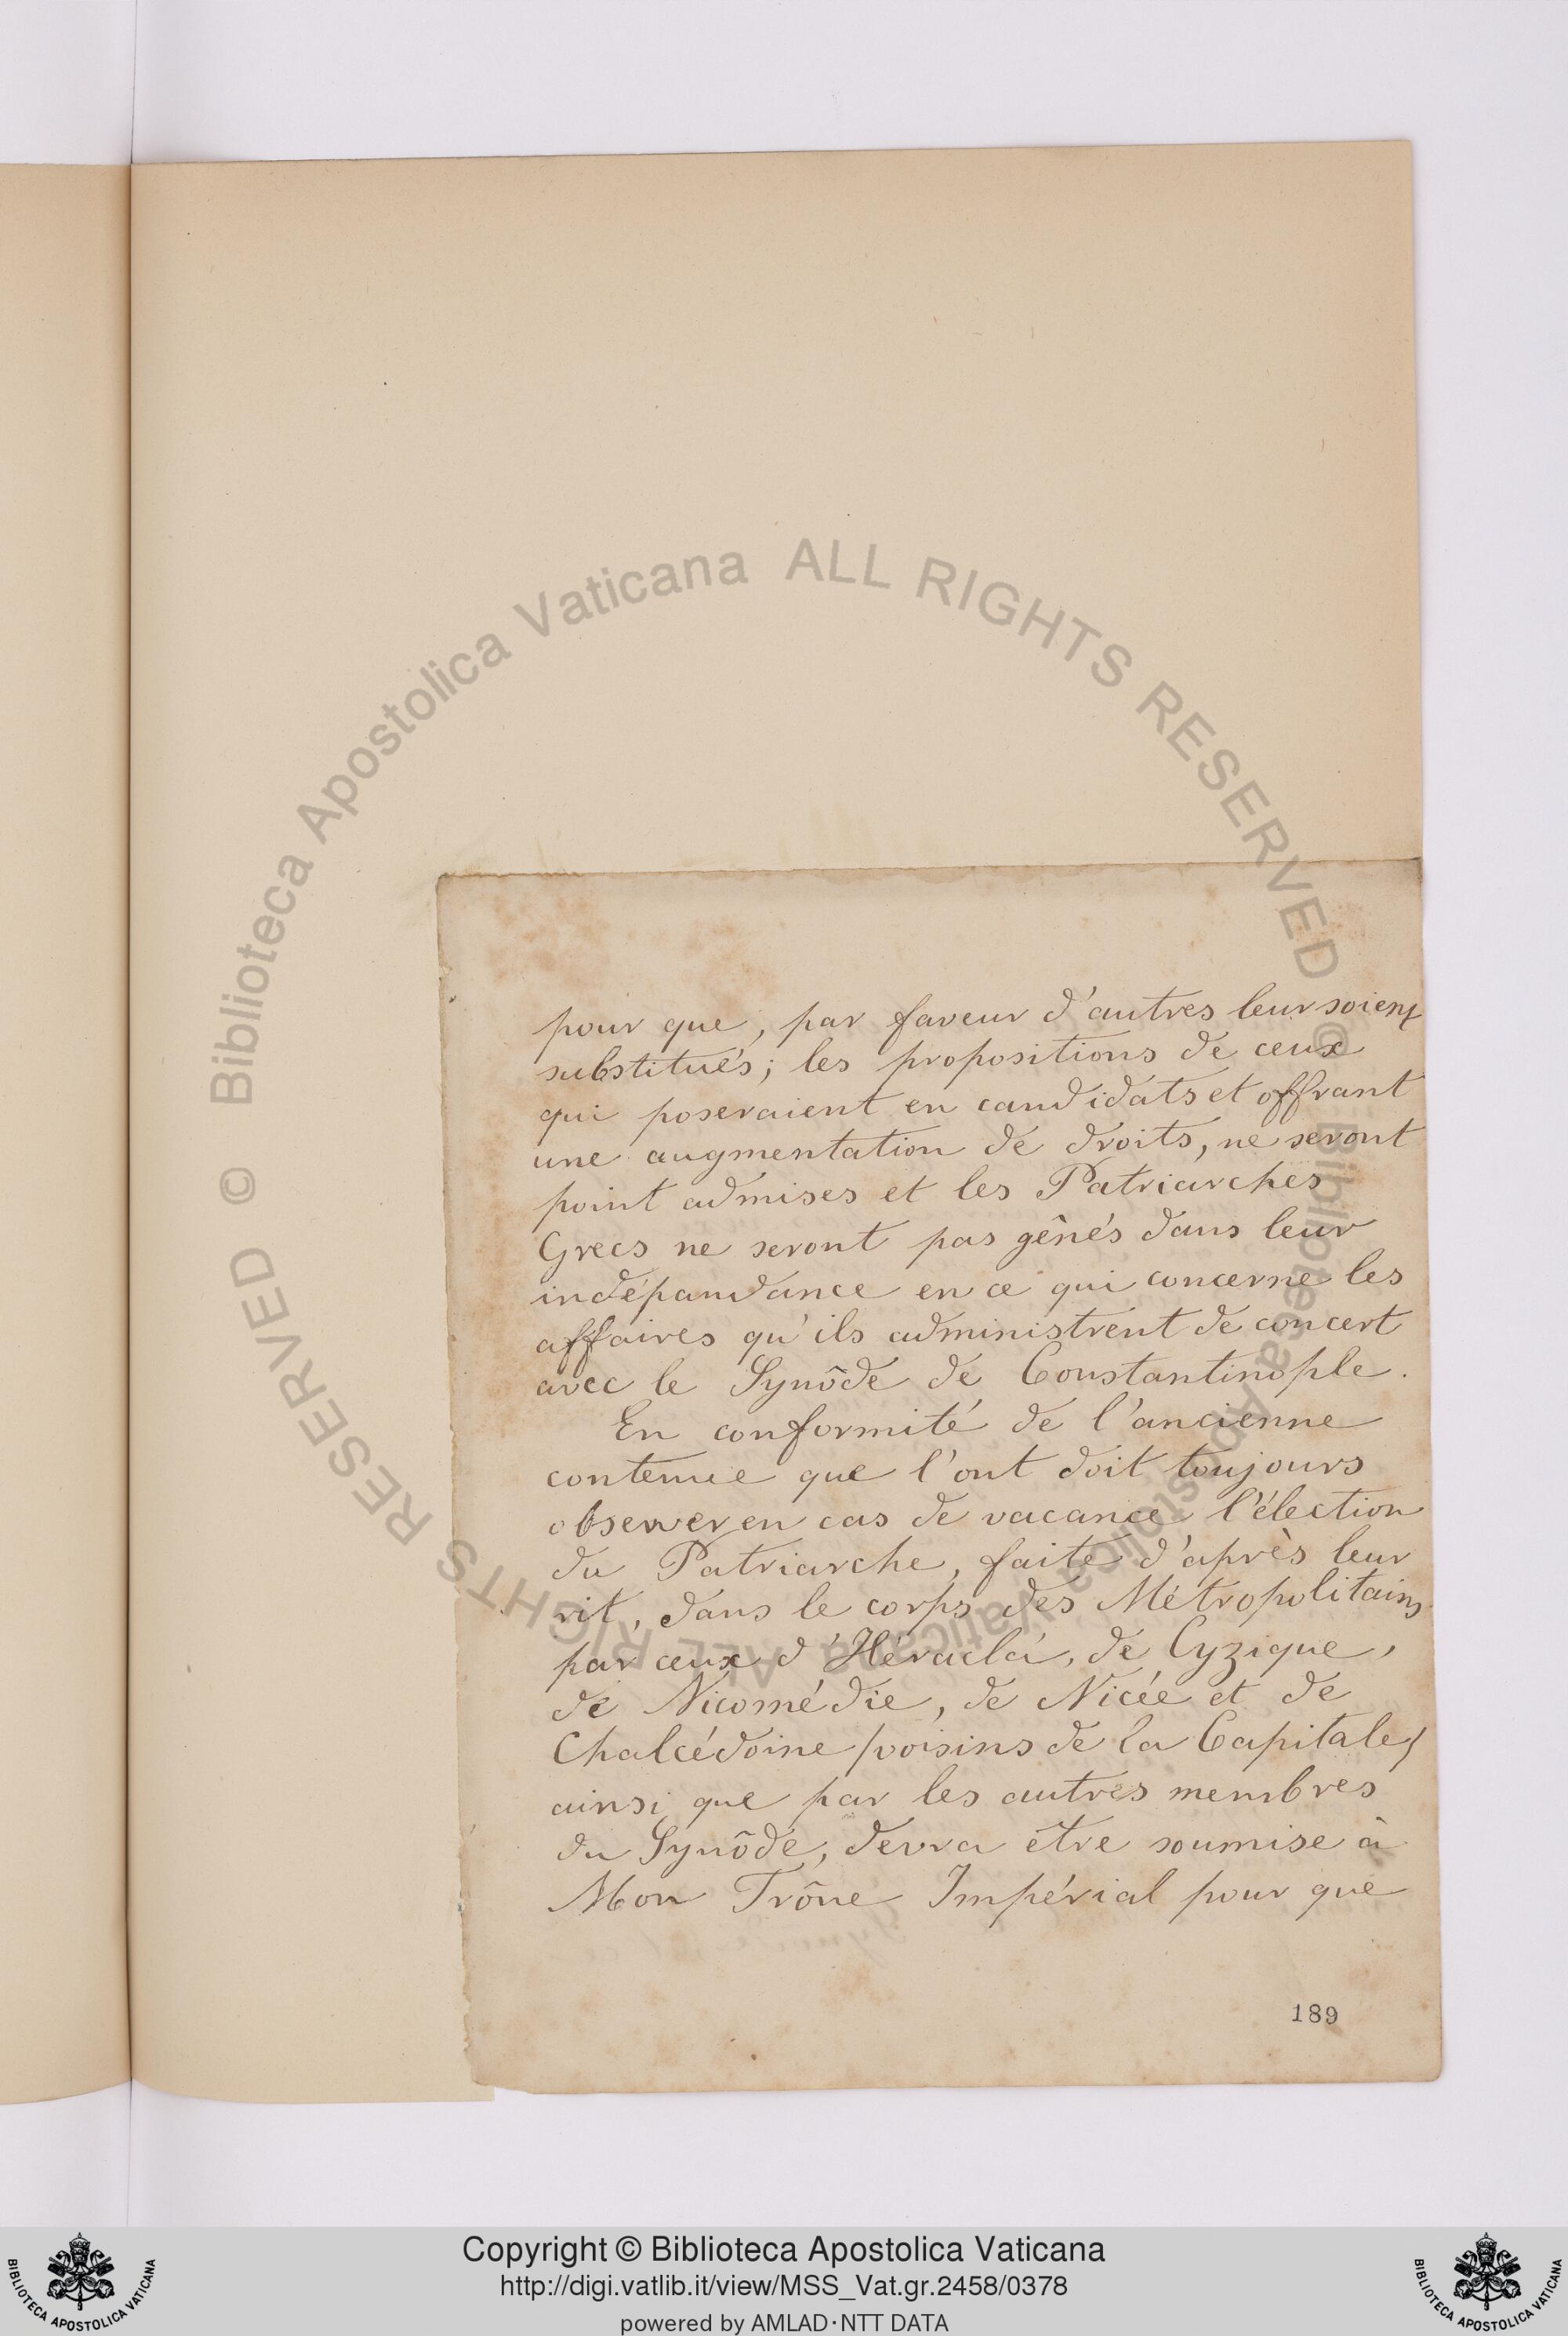 pour que, par faveur d'autres leur soient
substitués; les propositions de ceux
qui poseraient en candidats et offrant
une augmentation de droits, ne seront
point admises et les Patriarches
Grecs ne seront pas gênés dans leur
indépandance en ce qui concerne les
affaires qu'ils administrent de concert
avec le Synôde de Constantinople.
En conformité de l'ancienne
contenue que l'ont doit toujours
observer en cas de vacance l'élection
du Patriarche, faite d'après leur
rit, dans le corps des Métropolitains
par ceux d' de Cyzique,
de Nicomédie, de Nicée et de
Chalcédoine /voisins de la Capitale/
ainsi que par les autres membres
du Synôde, devra être soumise à
Mon Trône Impérial pour que
189
© Biblioteca Apostolica Vaticana ALL RIGHTS RESERVED
© Biblioteca Apostolica Vaticana ALL RIGHTS RESERVED
Copyright © Biblioteca Apostolica Vaticana
http://digi.vatlib.it/view/MSS_Vat.gr.2458/0378
powered by AMLAD·NTT DATA
BIBLIOTECA APOSTOLICA VATICANA
BIBLIOTECA APOSTOLICA VATICANA